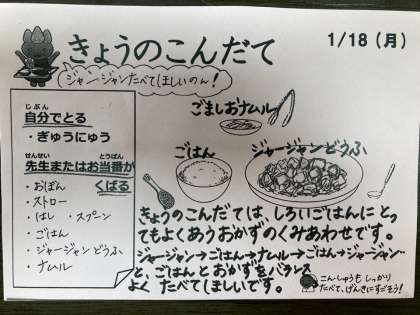 きょうのこんだて
1/18（月）
ジャン・ジャンたべてほしいのん！
じぶん
自分でとる
・ぎゅうにゅう
せんせい　とうばん
先生またはお当番が
くばる
・おぼん
・ストロー
・はし ・スプーン
・ごはん
・ジャージャンどうふ
・ナムル
ごましおナムル
ごはん
ジャージャンどうふ
きょうのこんだては、しろいごはんにとっ
てもよくあうおかずのくみあわせです。
ジャージャン→ごはん→ナムル→ごはん→ジャージャン…
と、ごはんとおかずをバランス
よく たべてほしいです。
こんしゅうも しっかり
たべて、げんきにすごそう！